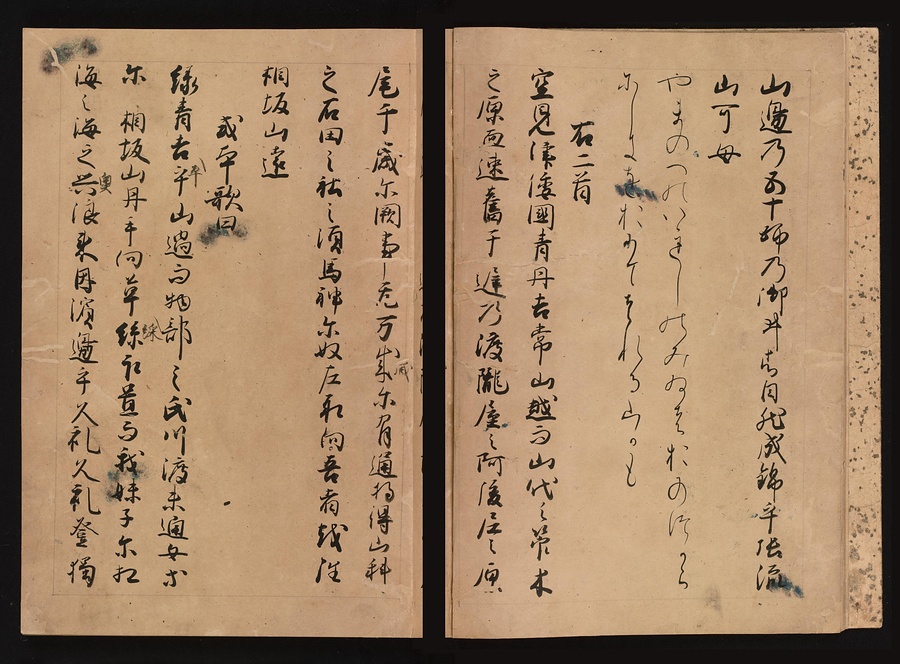 山邊乃五十師乃御井者自然成錦乎張流
山可母
やまのへのいそしのみゐはおのつから
にしきをおりてはれる山かも
右二首
空見津倭國青丹吉常山越而山代之管木
之原血速舊于遅乃渡瀧屋之阿後尼之原
尾千歳尓闕事無万歳尓有通将得山科
之石田之社之須馬神尓奴左取向吾者越往
相坂山遠
或本歌曰
緑青吉平山過而物部之氏川渡未通女等
尓相坂山丹手向草絲取置而我妹子尓相
海之海之奥浪来因濱邊乎久礼久礼登獨